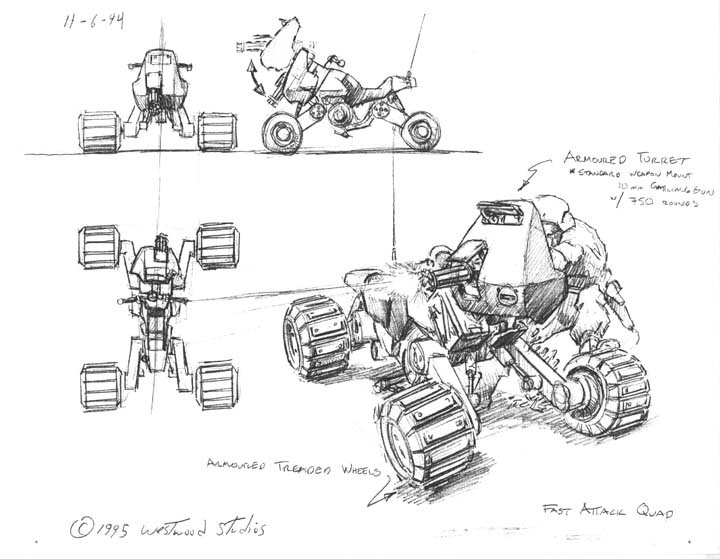 11-6-94
ARMOURED TURRET
* STANDARD WEAPON MOUNT
10 mm GATLING GUN
w/ 750 ROUNDS
ARMOURED TREADED WHEELS
FAST ATTACK QUAD
© 1995 Westwood Studios